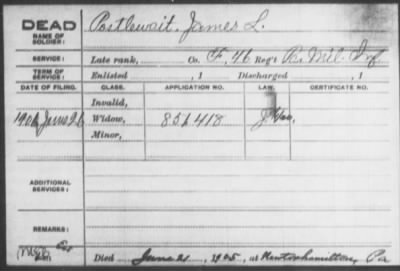 DEAD
NAME OF SOLDIER:
Postlewait, James L.
SERVICE:
Late rank, Co. F, 46 Reg't Pa. Mil. Inf
TERM OF SERVICE:
Enlisted , 1 Discharged , 1
DATE OF FILING. CLASS. APPLICATION NO. LAW. CERTIFICATE NO.
Invalid,
1906 June 26 Widow, 851418
Minor,
ADDITIONAL SERVICES:
REMARKS:
Died June 21, 1905, at Pa